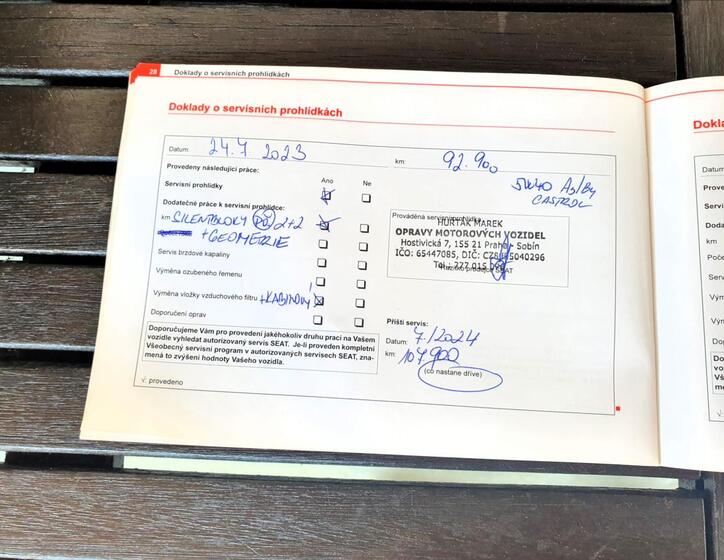 28 Doklady o servisních prohlídkách
Doklady o servisních prohlídkách
Datum: 24.7 2023 km: 92.900
Provedeny následující práce:
Ano Ne
Servisní prohlídky
5W40 A3/B4
CASTROL
Dodatečné práce k servisní prohlídce:
km SILENTBLOKY 2+2
+GEOMETRIE
Servis brzdové kapaliny
Výměna ozubeného řemenu
Výměna vložky vzduchového filtru +KABINOVÝ
Doporučení oprav
Prováděná servisní prohlídka
HURTÁK MAREK
OPRAVY MOTOROVÝCH VOZIDEL
Hostivická 7, 155 21 Praha - Sobín
IČO: 65447085, DIČ:
Tel.: 277 015
SEAT
Příští servis:
Datum: 7/2024
km:
(co nastane dříve)
Doporučujeme Vám pro provedení jakéhokoliv druhu prací na Vašem
vozidle vyhledat autorizovaný servis SEAT. Je-li proveden kompletní
Všeobecný servisní program v autorizovaných servisech SEAT, zna-
mená to zvýšení hodnoty Vašeho vozidla.
√. provedeno
Dokla
Datum
Prove
Servis
Dodat
km
Poče
Servi
Výměn
Výmě
Dop